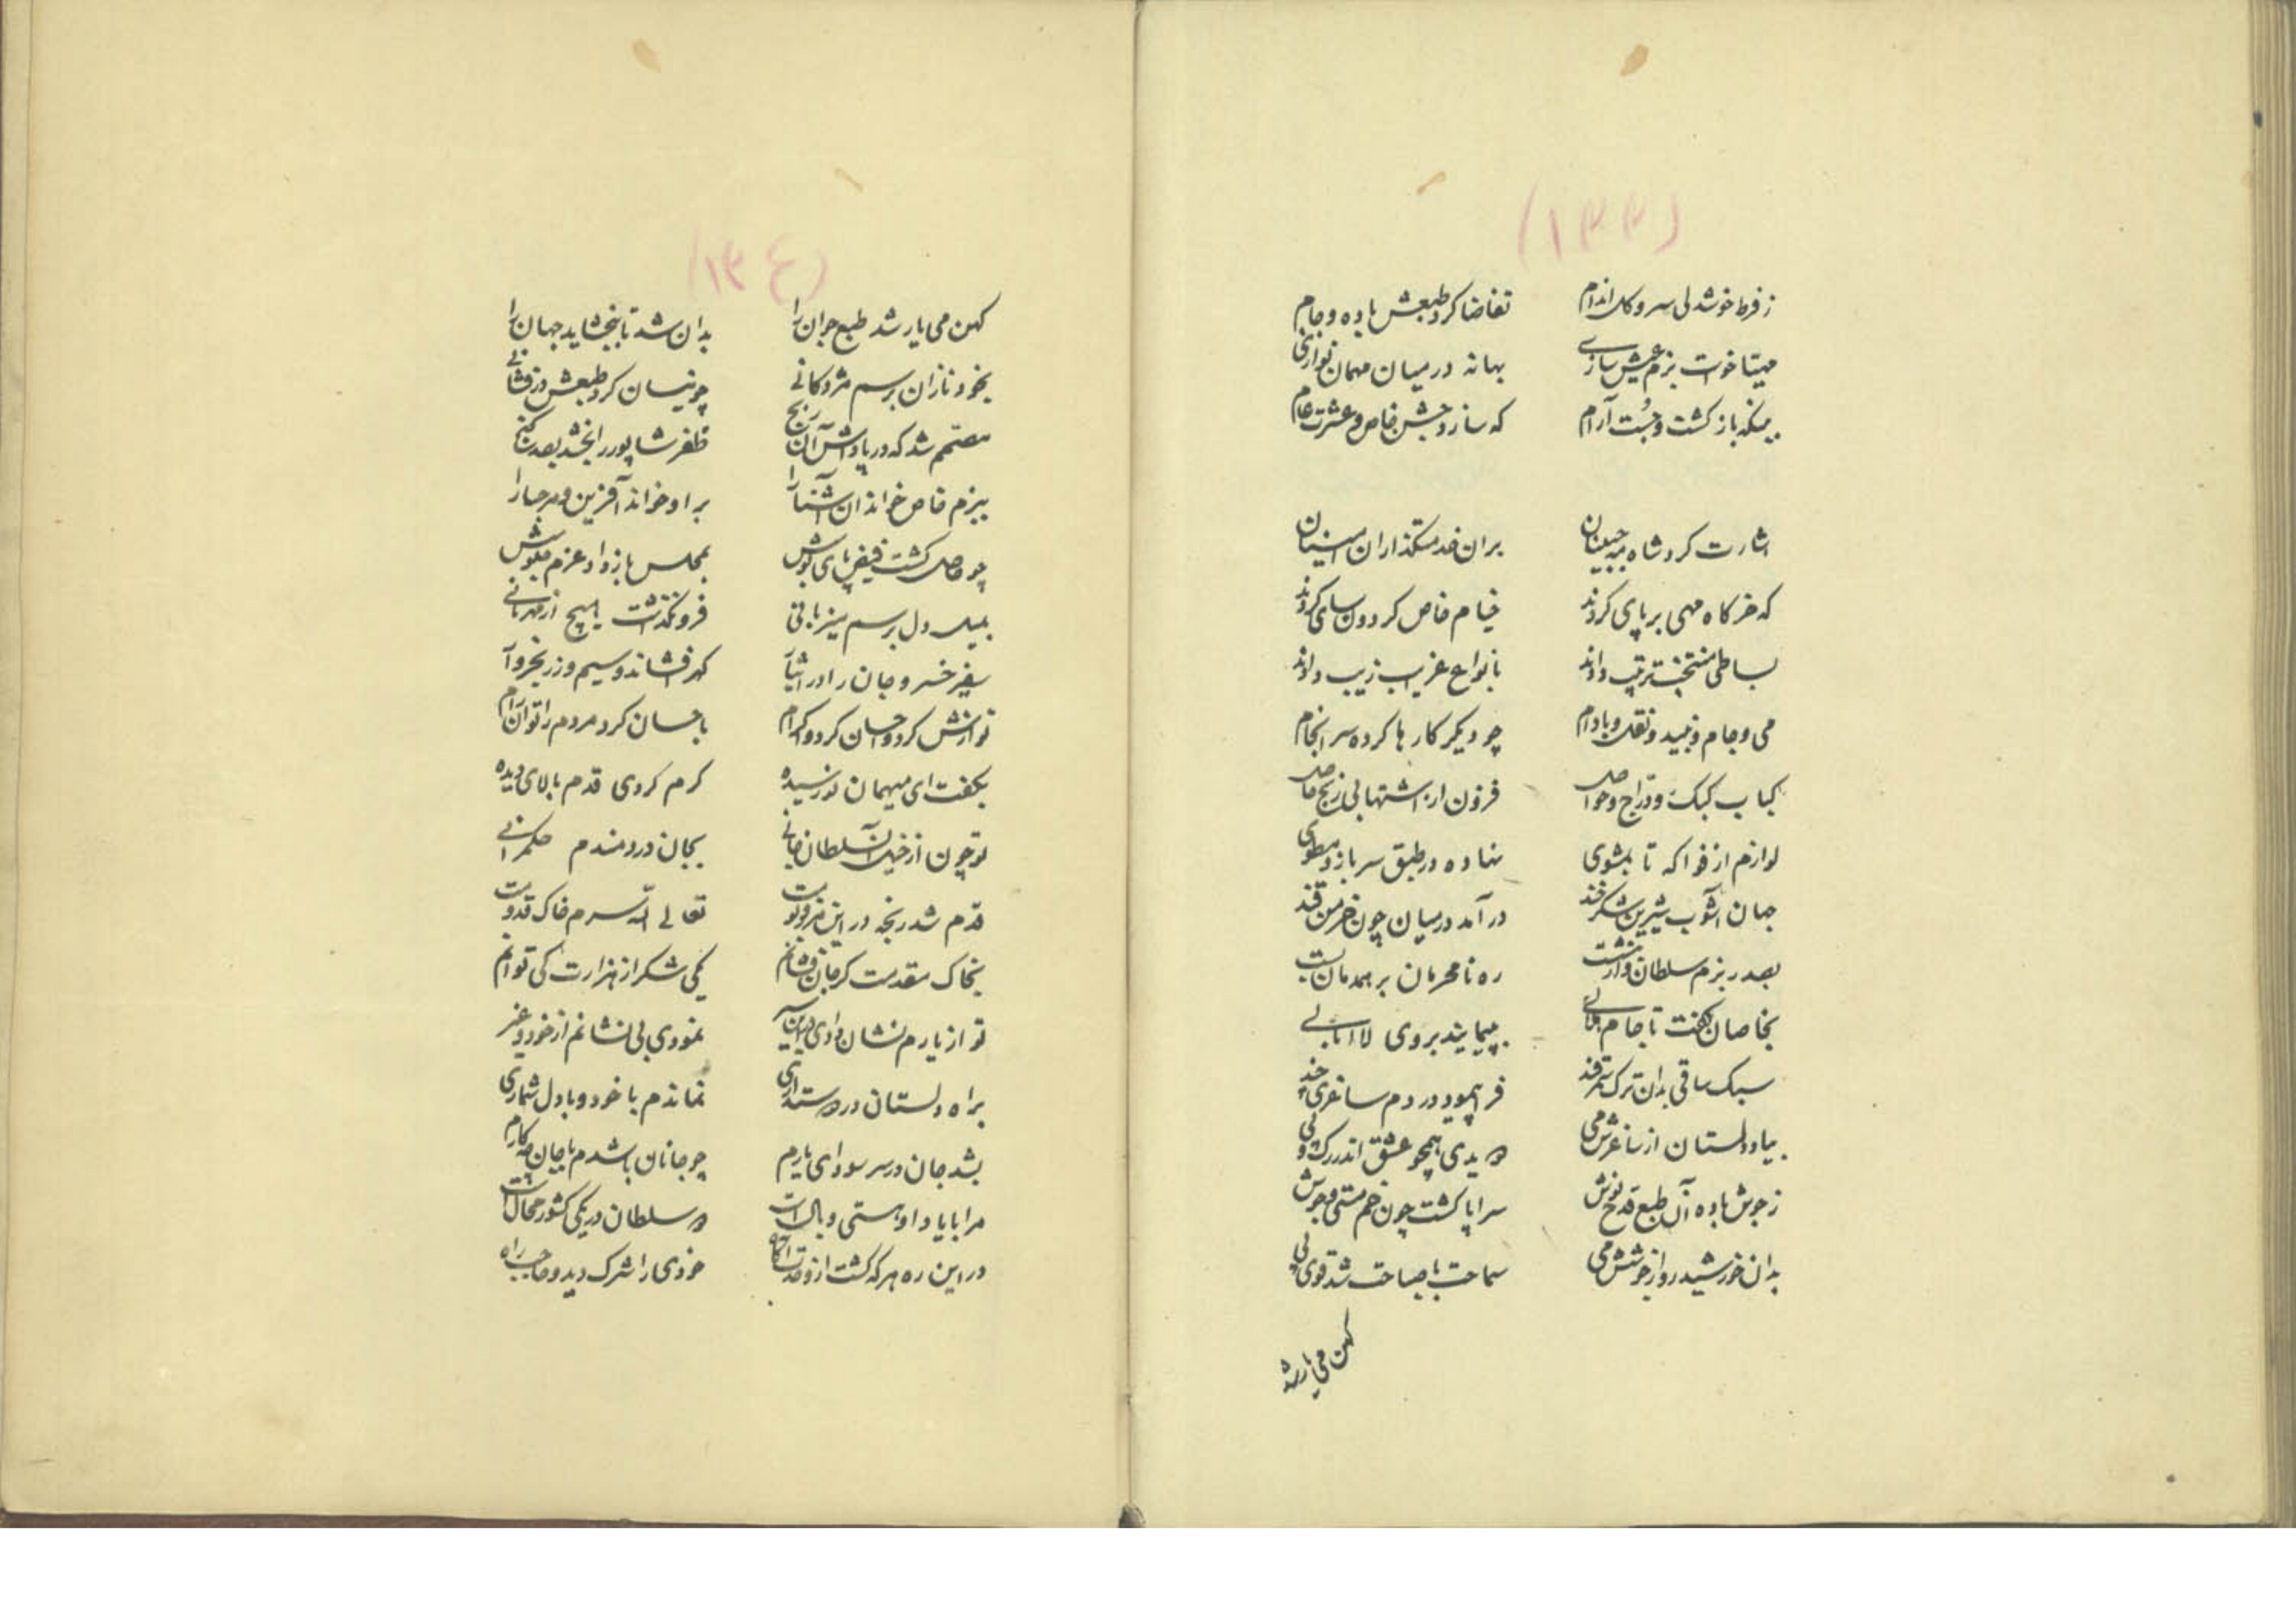 (۱۳۳)
ز فرط خوشدلی سرو گل اندام تقاضا کرد طبعش باده و جام
مهیا خوت بزم عیش سازی بهانه در میان مهمان نوازی
بمیکه باز کشت و جست آرام که سازد جشن خاص و عشرت عام
اشارت کرد شاه مه جبینان بران خدمتگذاران
که خرکاه مهی بر پای کردند خیام خاص کردون سای کردند
بساطی منتخب ترتیب دادند بانواع غریب زیب دادند
می و جام و نبید و نقل و بادام چو دیکر کارها کرده سرانجام
کباب کبک و دراج و حواصل فزون از اشتها بی رنج حاصل
لوازم از فواکه تا بمشوی نهاده در طبق سرباز و مطوی
جهان آشوب شیرین شکرخند درآمد در میان چون خرمن قند
بصدر بزم سلطان وار بنشست ره نامحرمان بر همدمان بست
بخاصان گفت تا جام پیمایند بروی لاابالی
سبک ساقی بدان ترک سمرقند فراپیمود در دم ساغری چند
بیاد دلستان از ساغرش می دویدی همچو عشق اندر رک و پی
ز جوش باده آن طبع قدح نوش سراپا کشت چون خم مستی و جوش
بدان خورشید رو از جوشش می سماحت با صباحت شد قوی پی
کهن می یار شد
(۱۳٤)
کهن می یار شد طبع جوان را بدان شد تا ببخشاید جهان را
بخود نازان برسم مژدکانی چو نیسان کرد طبعش درفشانی
مصمم شد که در پاداش آن رنج ظفر شاپور را بخشد بصد کنج
ببزم خاص خواند آن آشنا را بر او خواند آفرین و مرحبا را
چو حاصل کشت فیض پای بوسش بمجلس باز داد عزم جلوسش
بمیل دل برسم میزبانی فرو نگذشت هیچ از مهربانی
سفیر خسرو جان را در اثنا کهر افشاند و سیم و زر
نوازش کرد و احسان کرد و اکرام باحسان کرد مردم را توان رام
بکفت ای میهمان نورسیده کرم کردی قدم بالای دیده
تو چون از خیل آن سلطان جانی بجان دردمندم حکمرانی
قدم شد رنجه در این تعالی الله سرم خاک قدومت
بخاک مقدمت کر جان فشانم یکی شکر از هزارت کی توانم
تو از یارم نشان دادی نمودی بی نشانم از خود و غیر
براه دلستان در نماندم با خود و با دل شماری
بشد جان در سر سودای یارم چو جانان باشدم با جان چه کارم
مرا با یاد او هستی وبال است دو سلطان در یکی کشور محال است
در این ره هر که کشت از وحدت آگاه خودی را شرک دید و حاجب راه